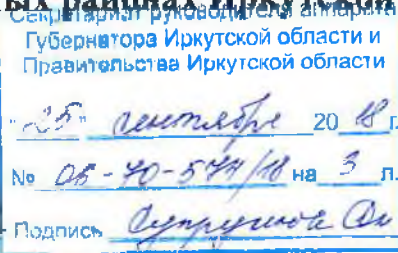 ных районах Иркутской
Секретариат руководителя аппарата
Губернатора Иркутской области и
Правительства Иркутской области
"25" сентября 2018 г.
№ 05-70-577/18 на 3 л.
Подпись